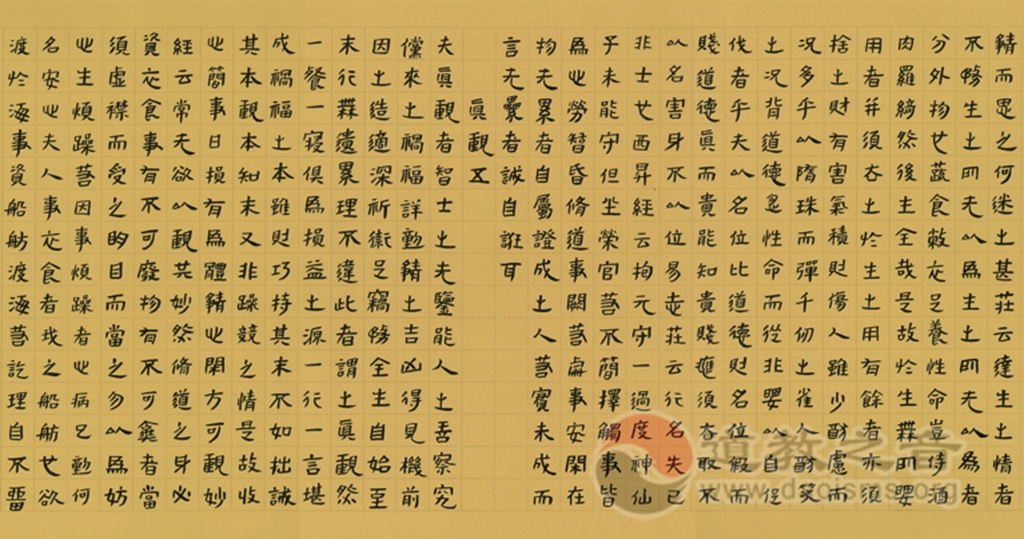 精而思之何迷之甚莊云達生之情者
不務生之所无以為生之所无以為者
分外物也蔬食弊衣足養性命豈待酒
肉羅綺然後生全哉是故於生無所要
用者并須去之於生之用有餘者亦須
捨之財有害氣積財傷人雖少猶慮而
況多乎以隋珠而彈千仞之雀人猶笑
之況背道德忽性命而從非要以自促
伐者乎夫以名位比道德財名位假而
賤道德真而貴能知貴賤應須去取不
以名害身不以位易志莊云行名失己
非士也西昇經云抱元守一過度神仙
子未能守但坐榮官若不簡擇觸事皆
為心勞智昏修道事闕若處事安閑在
物无累者自屬證成之人若實未成而
言无累者誠自誑耳
真觀五
夫真觀者智士之先鑒能人之善察究
儻來之禍福詳動靜之吉凶得見機前
因之造適深祈衛足竊務全生自始至
末行無遺累理不違此者謂之真觀然
一餐一寢俱為損益之源一行一言堪
成禍福之本雖則巧持其末不如拙誡
其本觀本知末又非躁競之情是故收
心簡事日損有為體靜心閑方可觀妙
經云常无欲以觀其妙然修道之身必
資衣食事有不可廢物有不可棄者當
須虛襟而受之明目而當之勿以為妨
心生煩躁若因事煩躁者心病已動何
名安心夫人事衣食者我之船舫也欲
渡於海事資船舫渡海若訖理自不留
道教之音
www.daoisms.org